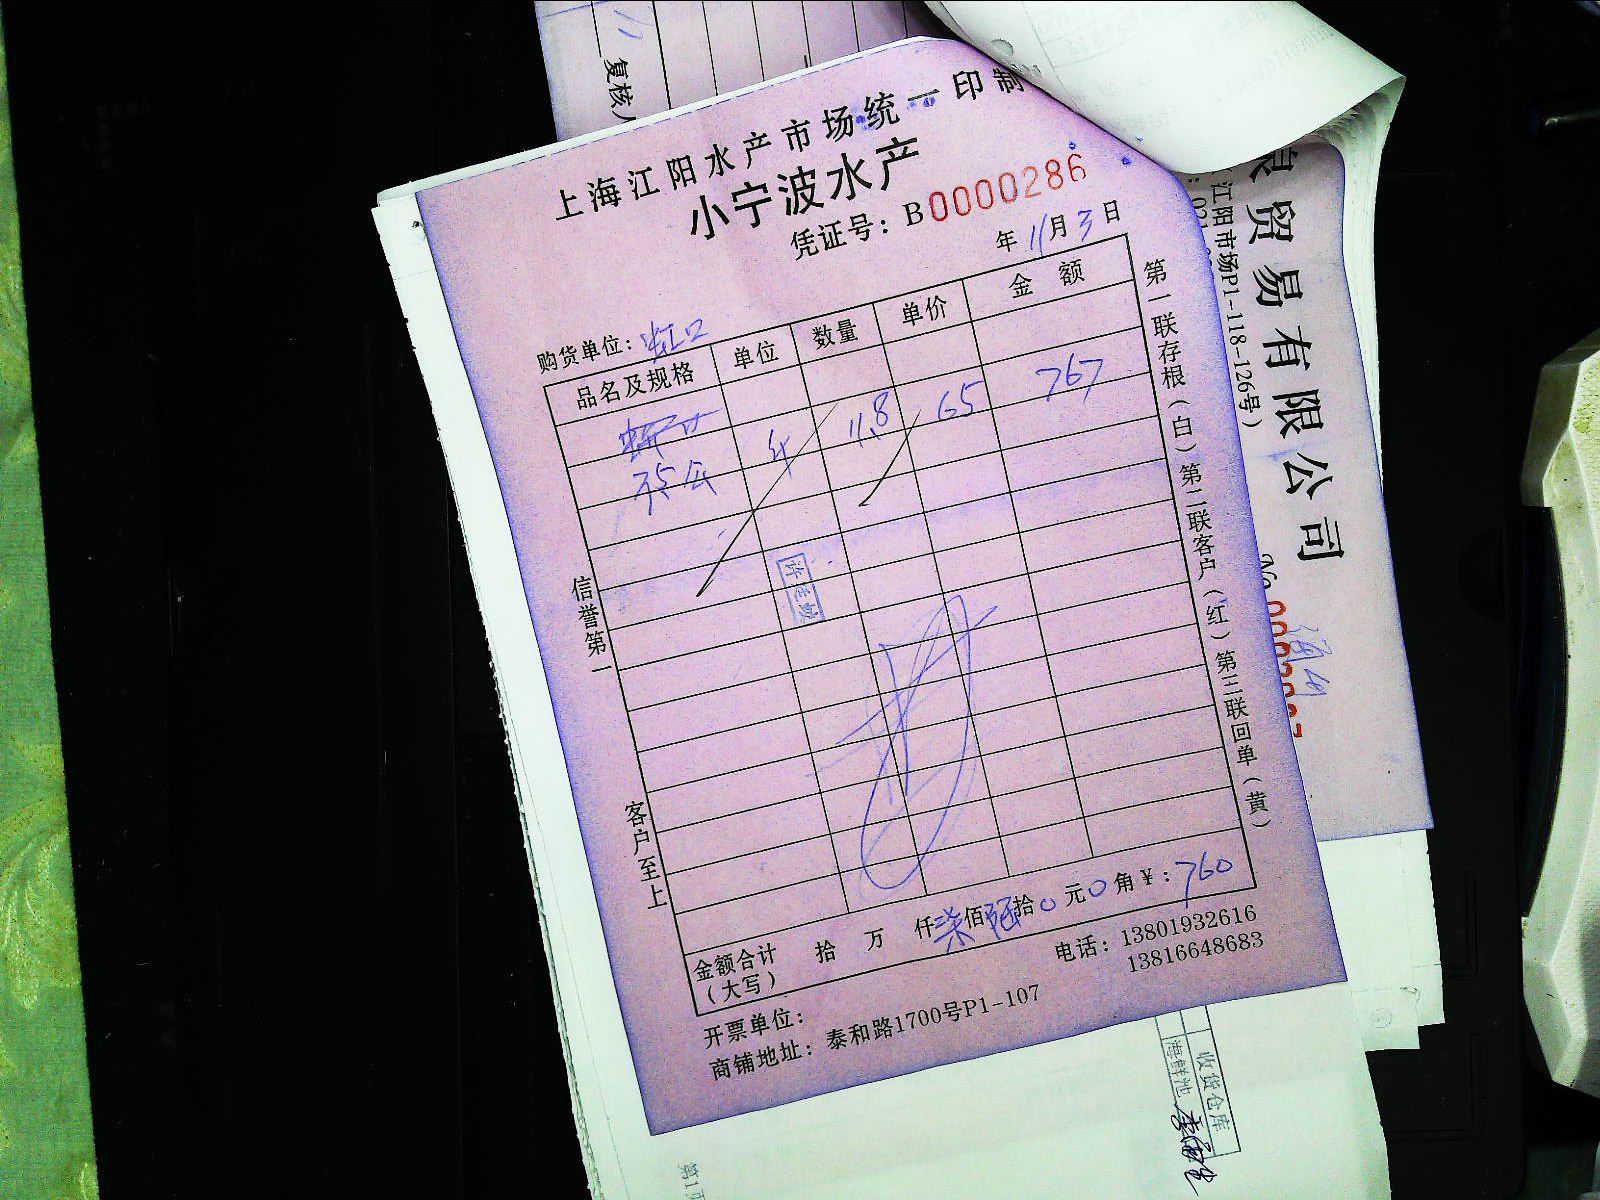 复核人
上海江阳水产市场统一印制
小宁波水产
凭证号：B0000286
年 11月3日
购货单位：虹口
品名及规格 单位 数量 单价 金额
11.8 65 767
35公
金额合计（大写） 拾 万 仟柒佰陆拾0元0角￥：760
电话：13801932616
13816648683
开票单位：
商铺地址：泰和路1700号P1-107
信誉第一 客户至上
第一联存根（白）第二联客户（红）第三联回单（黄）
贸易有限公司
江阳市场P1-118-126号）
收货仓库
海鲜池